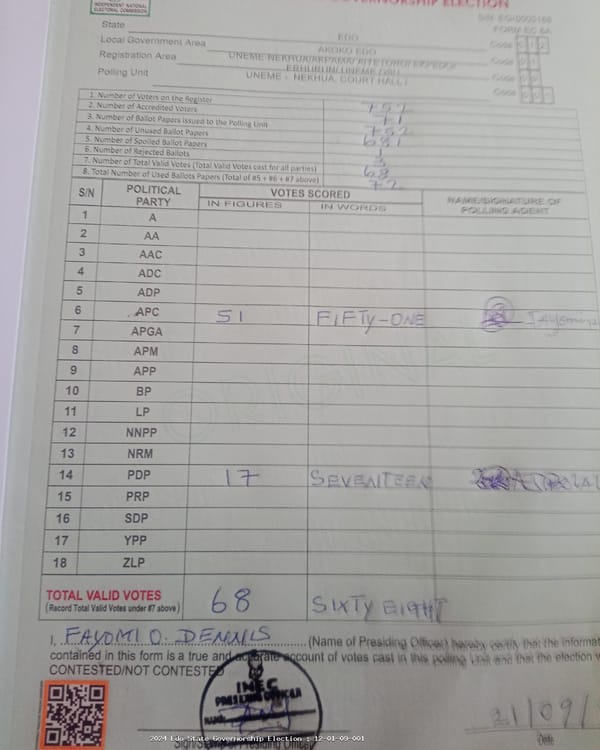 INDEPENDENT NATIONAL
ELECTORAL COMMISSION
GOVERNORSHIP ELECTION
FORM EC 8A
State EDO Code
Local Government Area AKOKO EDO Code
Registration Area Code
Polling Unit UNEME - NEKHUA, COURT HALL I Code
1. Number of Voters on the Register 752
2. Number of Accredited Voters 71
3. Number of Ballot Papers Issued to the Polling Unit 752
4. Number of Unused Ballot Papers 681
5. Number of Spoiled Ballot Papers 1
6. Number of Rejected Ballots 3
7. Number of Total Valid Votes (Total Valid Votes cast for all parties) 68
8. Total Number of Used Ballots Papers (Total of #5 + #6 + #7 above) 72
S/N POLITICAL PARTY VOTES SCORED NAME/SIGNATURE OF POLLING AGENT
IN FIGURES IN WORDS
1 A
2 AA
3 AAC
4 ADC
5 ADP
6 APC 51 FIFTY-ONE
7 APGA
8 APM
9 APP
10 BP
11 LP
12 NNPP
13 NRM
14 PDP 17 SEVENTEEN
15 PRP
16 SDP
17 YPP
18 ZLP
TOTAL VALID VOTES 68 SIXTY EIGHT
(Record Total Valid Votes under #7 above)
I, FAYOMI O. DENNIS (Name of Presiding Officer) hereby certify that the informat
contained in this form is a true and accurate account of votes cast in this polling Unit and that the election w
CONTESTED/NOT CONTESTED
INEC
PRESIDING OFFICER
NAME:
21/09/
Date
Sign/Stamp of Presiding Officer
2024 Edo State Governorship Election : 12-01-09-001